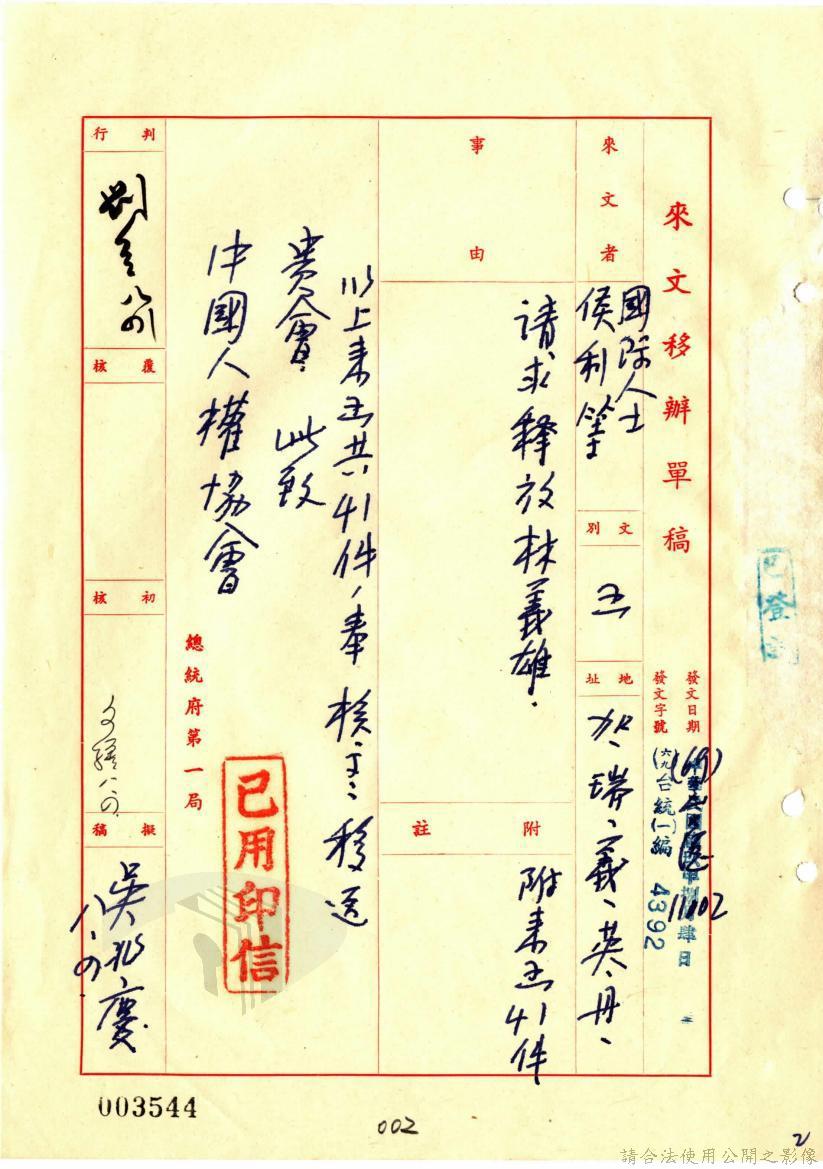 來文移辦單稿
發文日期
發文字號
(六九)台統(一)編 4392
來文者
國際人士
侯利等
文別
函
地址
加、瑞、義、英、丹、
事由
請求釋放林義雄.
附註
附來函41件
以上來函共41件,奉 核字移送
貴會 此致
中國人權協會
總統府第一局
已用印信
判行
覆核
初核
擬稿
吳兆慶
八、四
已登
003544
002
2
請合法使用公開之影像